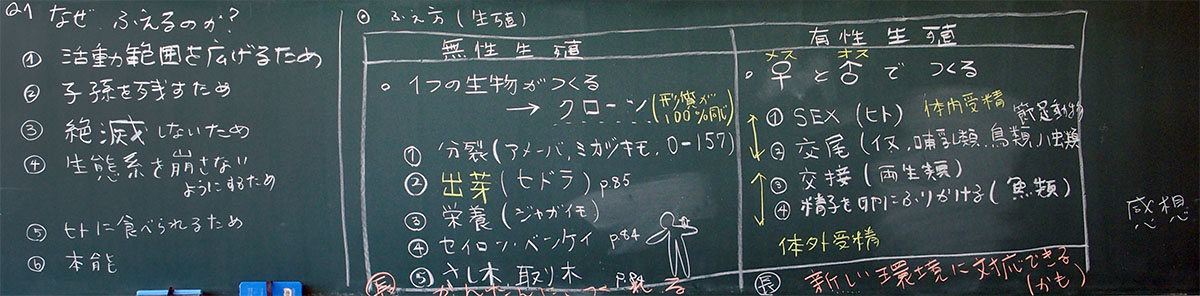 Q1 なぜ ふえるのか?
① 活動範囲を広げるため
② 子孫を残すため
③ 絶滅しないため
④ 生態系を崩さない
ようにするため
⑤ ヒトに食べられるため
⑥ 本能
◎ ふえ方(生殖)
無性生殖
○ 1つの生物がつくる
→ クローン(形質が
100%同じ)
① 分裂(アメーバ,ミカヅキモ,O-157)
② 出芽(ヒドラ) p.85
③ 栄養(ジャガイモ)
④ セイロン・ベンケイ p.84
⑤ さし木,取り木 p.84
長 かんたんに
有性生殖
メス オス
○ ♀と♂で つくる
① SEX(ヒト) 体内受精 節足動物
② 交尾(イヌ,哺乳類,鳥類,ハ虫類
③ 交接(両生類)
④ 精子を卵にふりかける(魚類)
体外受精
長 新しい環境に対応できる
(かも)
感想